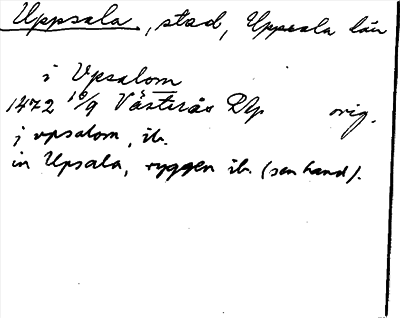 Uppsala, stad, Uppsala län
i Vpsalom
1472 10/9 Västerås Dlp orig.
j vpsalom, ib.
in Upsala, ryggen ib. (sen hand).